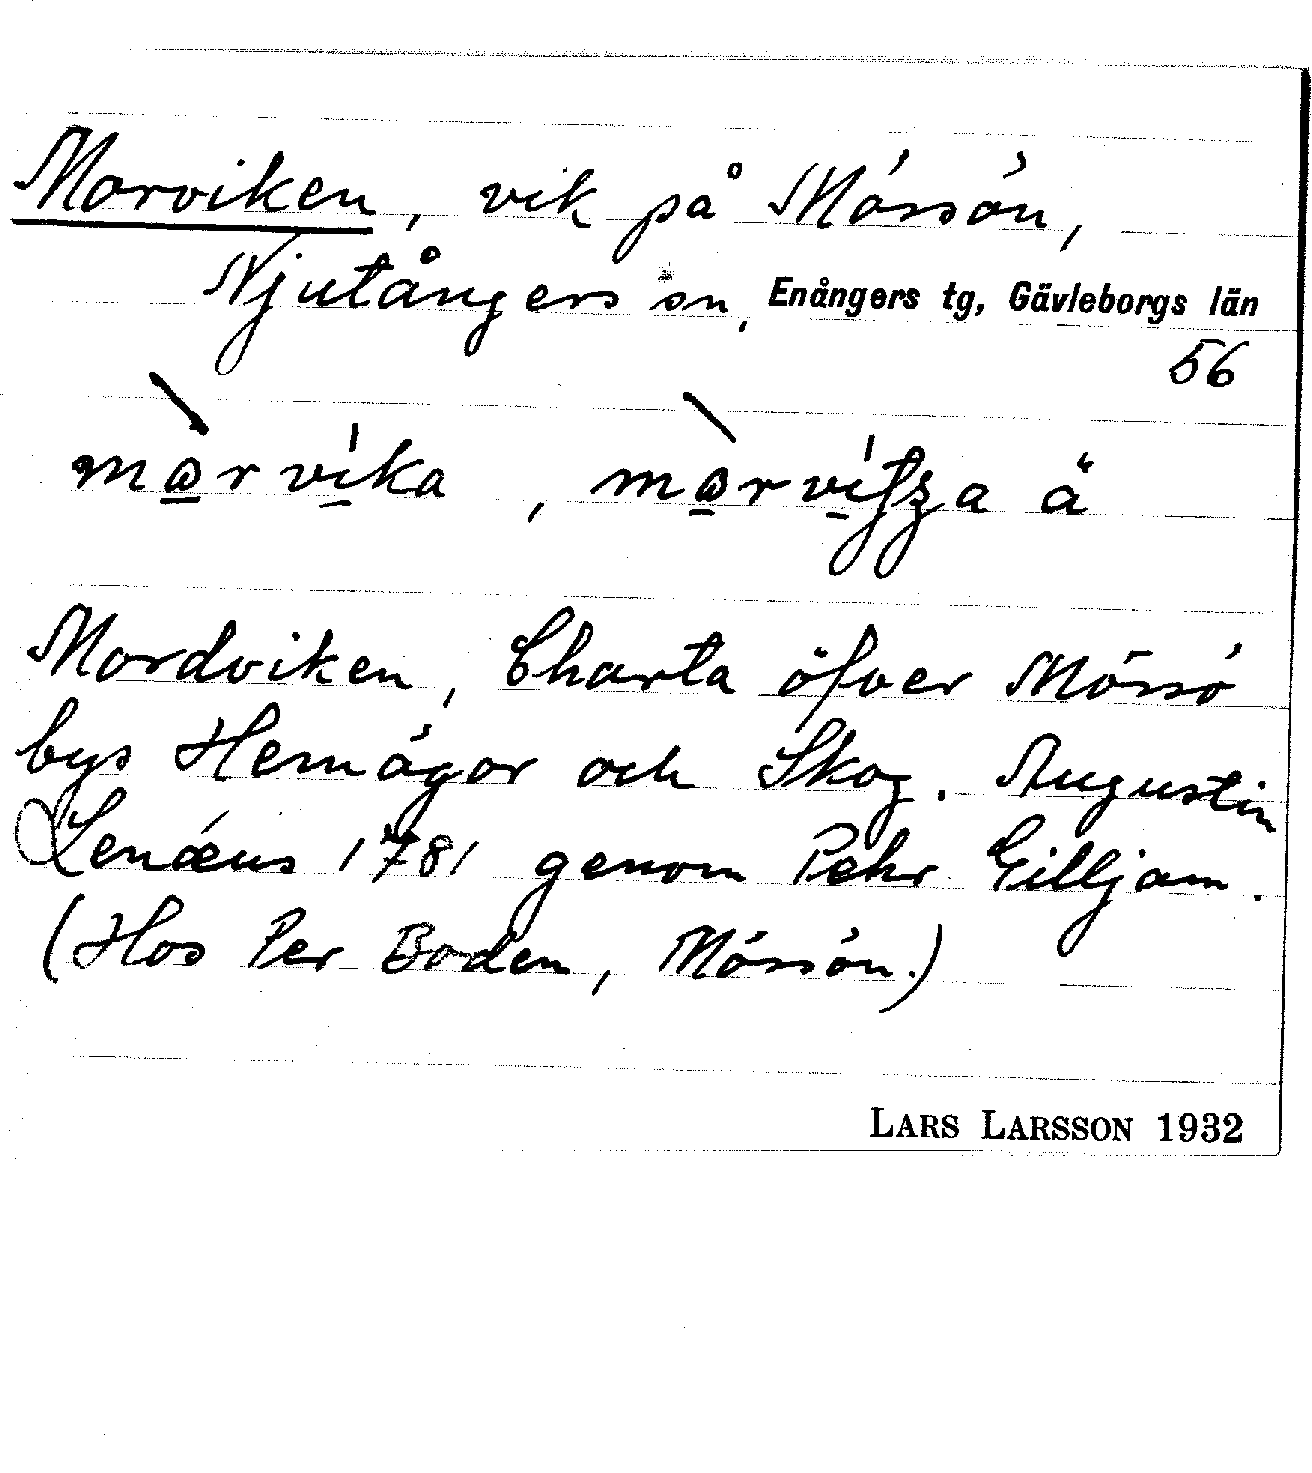 Morviken, vik på Mössön,
Njutångers sn, Enångers tg, Gävleborgs län
56
Mordviken, Charta öfver Mössö
bys Hemägor och Skog. Augustin
Lenæus 1781 genom Pehr Gilljam.
(Hos Per Boden, Mössön.)
LARS LARSSON 1932